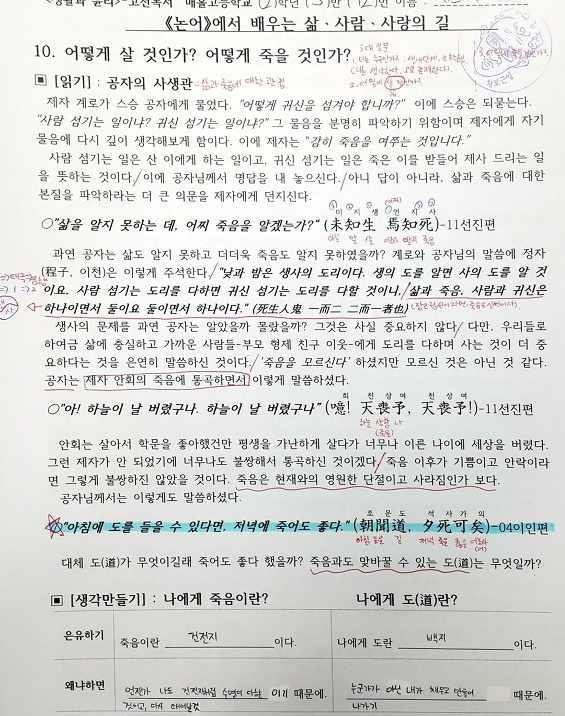 <생활과 윤리>-고전독서 매홀고등학교 (2)학년 (3)반 (2)번 이름 :
《논어》에서 배우는 삶ㆍ사람ㆍ사랑의 길
10. 어떻게 살 것인가? 어떻게 죽을 것인가?
3대 질문
2. 어떻게 살 것인가.
[읽기] : 공자의 사생관
삶과 죽음에 대한 관점
제자 계로가 스승 공자에게 물었다. "어떻게 귀신을 섬겨야 합니까?" 이에 스승은 되묻는다.
"사람 섬기는 일이냐? 귀신 섬기는 일이냐?" 그 물음을 분명히 파악하기 위함이며 제자에게 자기
물음에 다시 깊이 생각해보게 함이다. 이에 제자는 "감히 죽음을 여쭈는 것입니다."
사람 섬기는 일은 산 이에게 하는 일이고, 귀신 섬기는 일은 죽은 이를 받들어 제사 드리는 일
을 뜻하는 것이다./ 이에 공자님께서 명답을 내 놓으신다./ 아니 답이 아니라, 삶과 죽음에 대한
본질을 파악하라는 더 큰 의문을 제자에게 던지신다.
미 지 생 언 지 사
○"삶을 알지 못하는 데, 어찌 죽음을 알겠는가?" (未知生 焉知死)-11선진편
과연 공자는 삶도 알지 못하고 더더욱 죽음도 알지 못하였을까? 계로와 공자님의 말씀에 정자
(程子, 이천)은 이렇게 주석한다./ "낮과 밤은 생사의 도리이다. 생의 도를 알면 사의 도를 알 것
이요, 사람 섬기는 도리를 다하면 귀신 섬기는 도리를 다할 것이니,/ 삶과 죽음, 사람과 귀신은
하나이면서 둘이요 둘이면서 하나이다." (死生人鬼 一而二 二而一者也)
생사의 문제를 과연 공자는 알았을까 몰랐을까? 그것은 사실 중요하지 않다./ 다만, 우리들로
하여금 삶에 충실하고 가까운 사람들-부모 형제 친구 이웃-에게 도리를 다하며 사는 것이 더 중
요하다는 것을 은연히 말씀하신 것이다./ '죽음을 모르신다' 하셨지만 모르신 것은 아닌 것 같다.
공자는 제자 안회의 죽음에 통곡하면서 이렇게 말씀하셨다.
희 천 상 여 천 상 여
○"아! 하늘이 날 버렸구나. 하늘이 날 버렸구나" (噫! 天喪予, 天喪予!)-11선진편
하늘 상할 나
안회는 살아서 학문을 좋아했건만 평생을 가난하게 살다가 너무나 이른 나이에 세상을 버렸다.
그런 제자가 안 되었기에 너무나도 불쌍해서 통곡하신 것이겠다./ 죽음 이후가 기쁨이고 안락이라
면 그렇게 불쌍하진 않았을 것이다. 죽음은 현재와의 영원한 단절이고 사라짐인가 보다.
공자님께서는 이렇게도 말씀하셨다.
조 문 도 석 사 가 의
○"아침에 도를 들을 수 있다면, 저녁에 죽어도 좋다." (朝聞道, 夕死可矣)-04이인편
아침 들을 길 저녁 죽을 옳을 어조사
대체 도(道)가 무엇이길래 죽어도 좋다 했을까? 죽음과도 맞바꿀 수 있는 도(道)는 무엇일까?
[생각만들기] : 나에게 죽음이란? 나에게 도(道)란?
은유하기 죽음이란 건전지 이다. 나에게 도란 백지 이다.
왜냐하면 언젠가 나도 건전지처럼 수명이 다할 이기 때문에. 누군가가 아닌 내가 채우고 만들어 때문에.
나가기